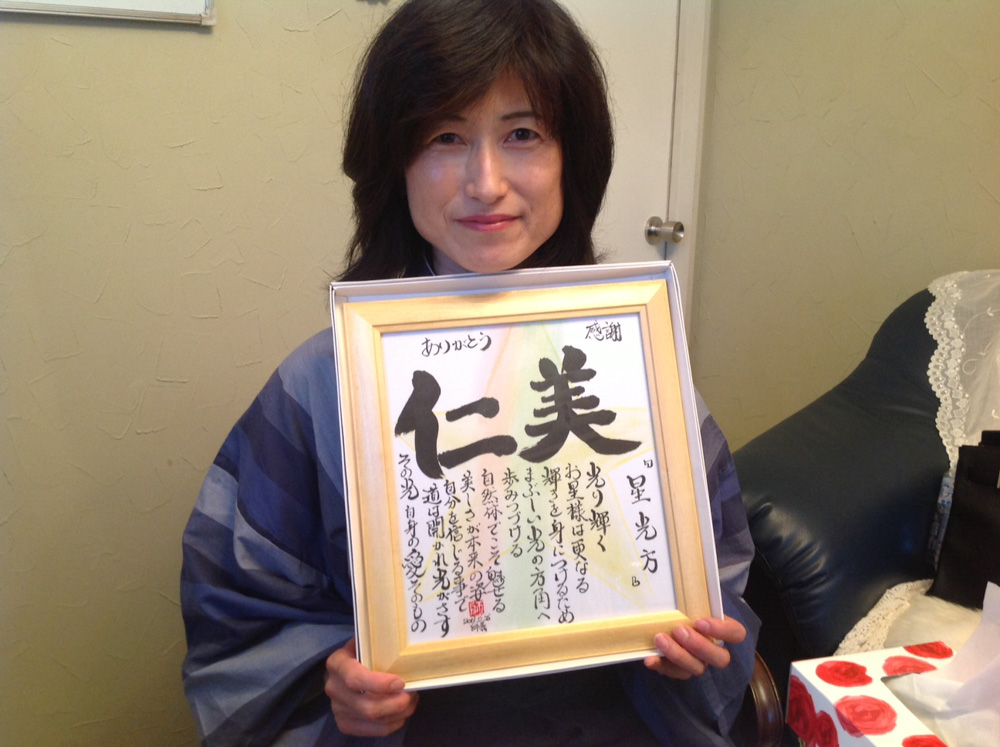 感謝
ありがとう
美仁
『星光方』
光り輝く
お星様は更なる
輝きを身につけるため
まぶしい光の方角へ
歩みつづける
自然体でこそ魅せる
美しさが本来の姿
自分を信じる事で
道は開かれ光がさす
その光 自身の愛そのもの